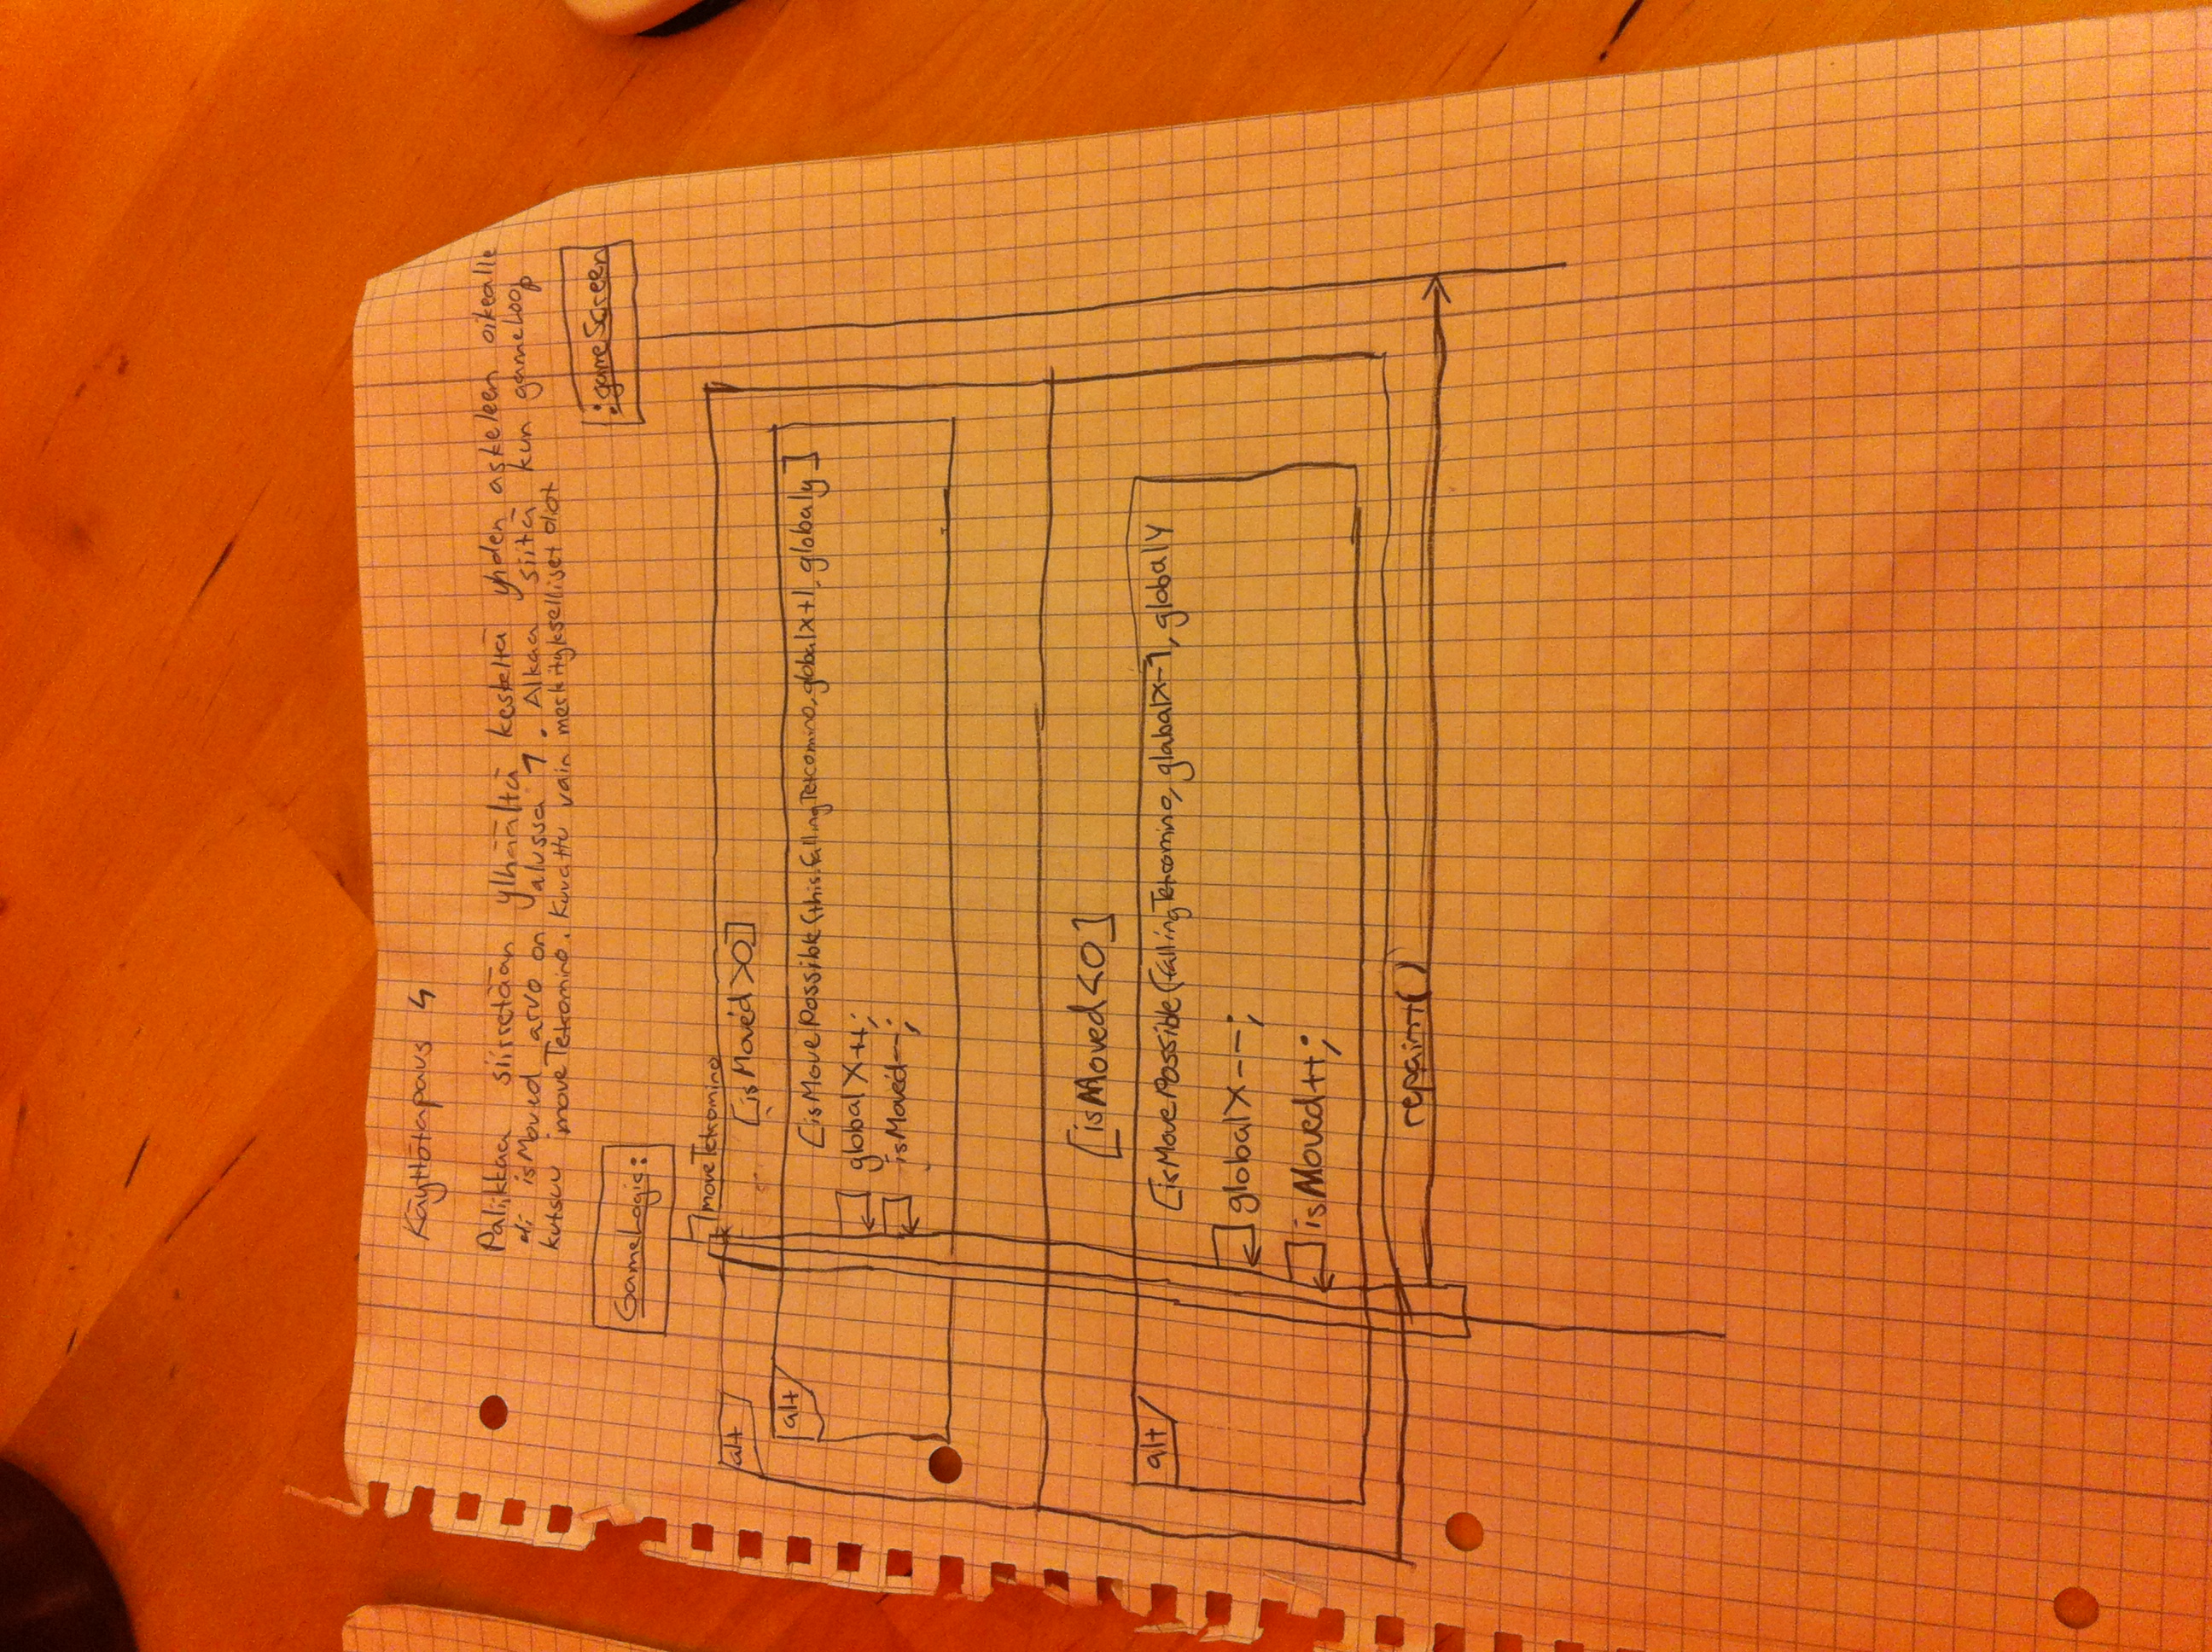 Käyttötapaus 4
Palikkaa siirretään ylhäältä keskeltä yhden askeleen oikealle
eli isMoved arvo on alussa 1. Alkaa siitä kun gameloop
kutsuu moveTetromino. Kuvattu vain merkitykselliset oliot
GameLogic:
:gameScreen
moveTetromino
alt
[isMoved>0]
alt
[isMovePossible(this.fallingTetromino, globalx+1, globaly]
globalX++;
isMoved--;
[isMoved<0]
alt
[isMovePossible(fallingTetromino, globalx-1, globaly
globalX--;
isMoved++;
repaint()